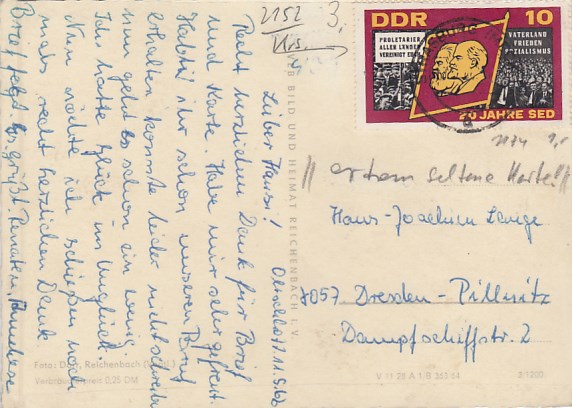 2152
3.
Lieber Hansi!
Recht herzlichen Dank für Brief
und Karte. Habe mir sehr gefreut.
Habt ihr schon unseren Brief
erhalten konnte leider nicht schreiben
nun geht es schon ein wenig.
Ich hatte Glück im Unglück.
Nun möchte ich schließen noch
mals recht herzlichen Dank
Brief folgt. Es grüßt Renate
BILD UND HEIMAT REICHENBACH I. V.
Foto: Reichenbach
Verbraucherpreis 0,25 DM
DDR 10
PROLETARIER
ALLER LÄNDER
VEREINIGT EUCH
VATERLAND
FRIEDEN
SOZIALISMUS
20 JAHRE SED
// extrem seltene Karte! //
Hans-Joachim
8057 Dresden-Pillnitz
Dampfschiffstr. 2
V 11 28 A 1/B 363/64